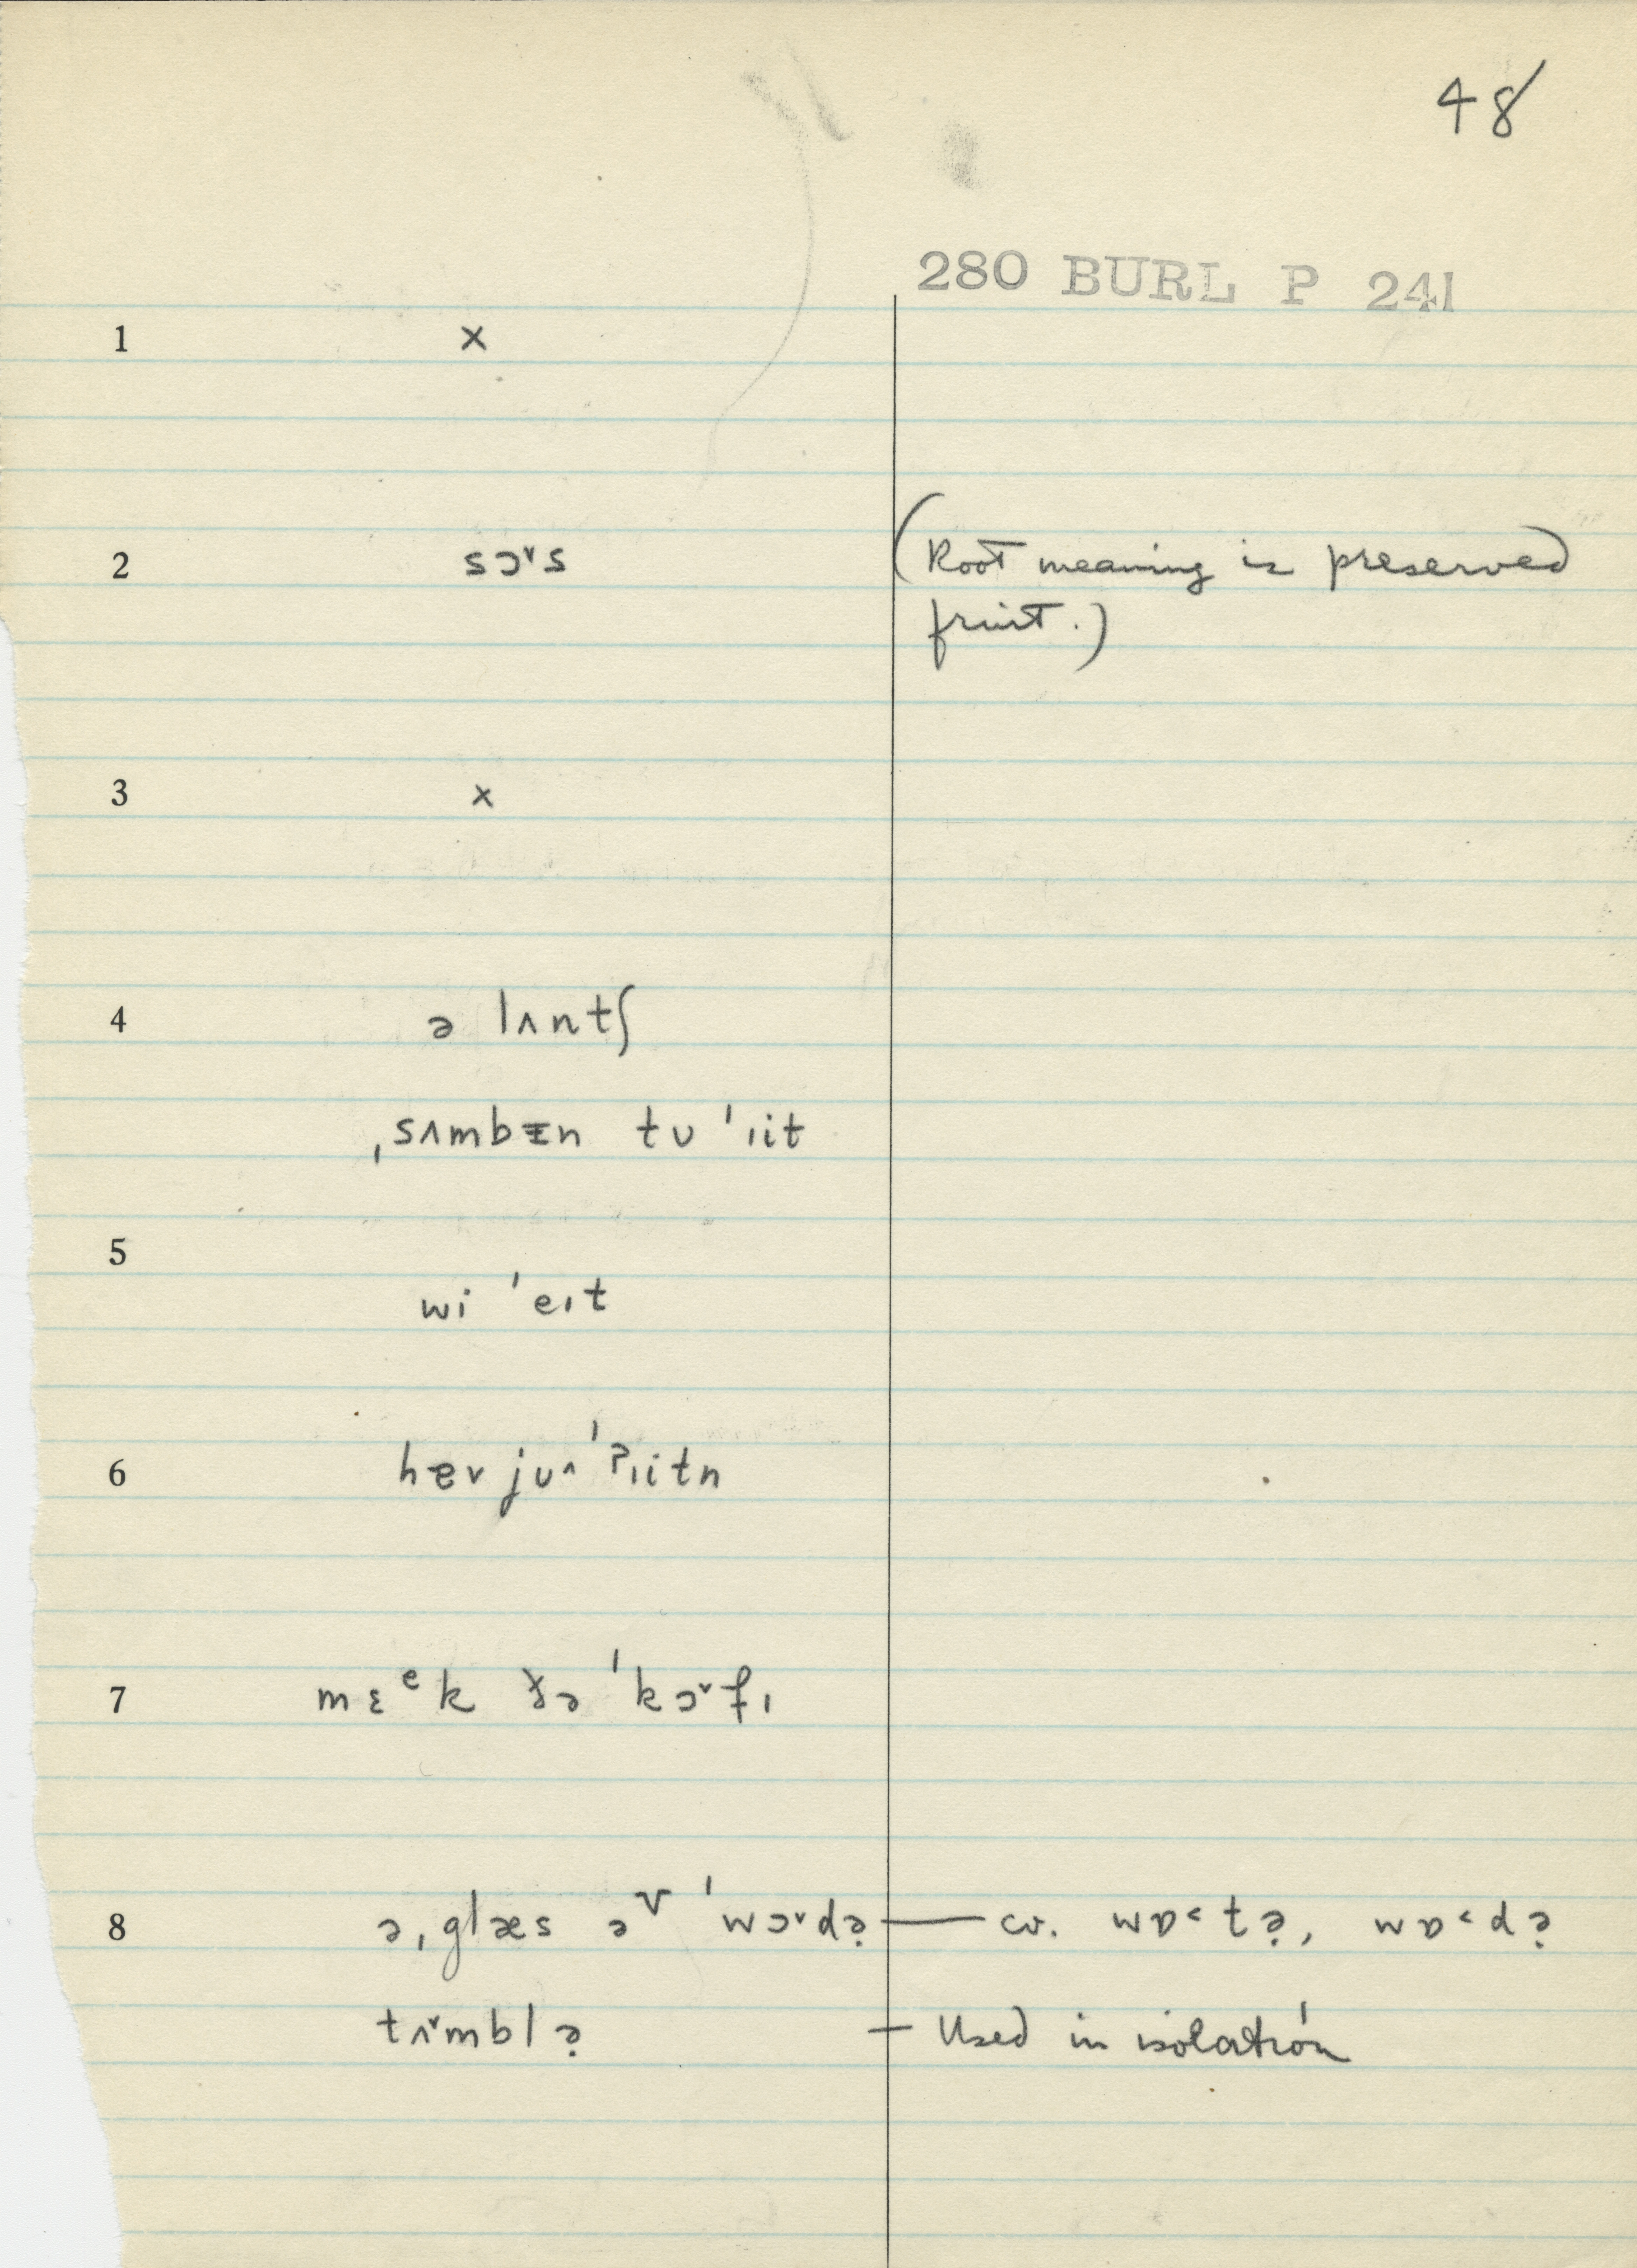 48
280 BURL P 241
1 x
2 sɔ˅s (Root meaning is preserved
fruit.)
3 x
4 ə lʌntʃ
ˌsʌmbᵻn tʊ ˈɪit
5
wi ˈeɪt
6 hɐv jʊ^ ˈʔɪitn
7 mɛᵉk ðə ˈkɔ˅fɪ
8 ə ˌglæs əᵛ ˈwɔ˅də̣ — cv. wɒ˂tə̣, wɒ˂də̣
tʌ˅mblə̣ — Used in isolation